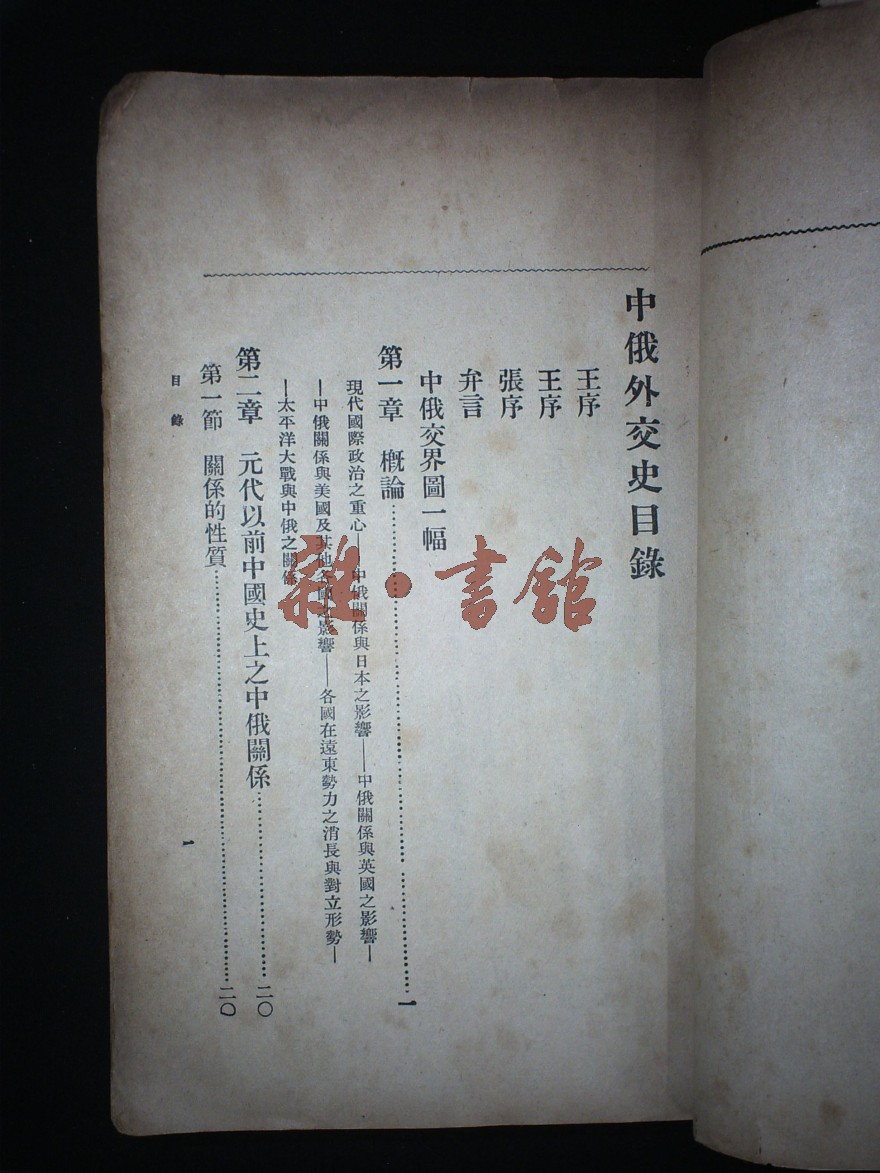 中俄外交史目錄
王序
王序
張序
弁言
中俄交界圖一幅
第一章 概論……………………一
現代國際政治之重心——中俄關係與日本之影響——中俄關係與英國之影響—
—中俄關係與美國及其他各國之影響——各國在遠東勢力之消長與對立形勢—
—太平洋大戰與中俄之關係
第二章 元代以前中國史上之中俄關係……………………二〇
第一節 關係的性質……………………二〇
目錄
一
雜·書館